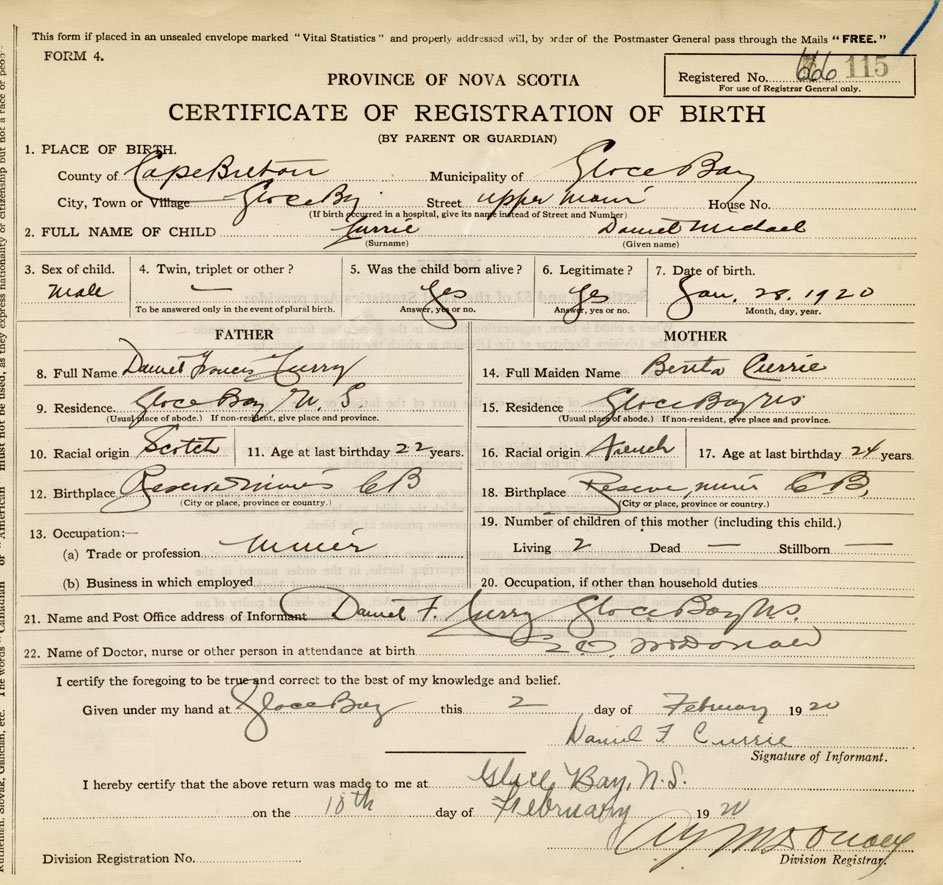 This form if placed in an unsealed envelope marked "Vital Statistics" and properly addressed will, by order of the Postmaster General pass through the Mails "FREE."
FORM 4.
PROVINCE OF NOVA SCOTIA
Registered No. 666 115
For use of Registrar General only.
CERTIFICATE OF REGISTRATION OF BIRTH
(BY PARENT OR GUARDIAN)
1. PLACE OF BIRTH.
County of Cape Breton Municipality of Glace Bay
City, Town or Village Glace Bay Street upper main House No.
(If birth occurred in a hospital, give its name instead of Street and Number)
2. FULL NAME OF CHILD Currie Daniel Michael
(Surname) (Given name)
3. Sex of child. 4. Twin, triplet or other? 5. Was the child born alive? 6. Legitimate? 7. Date of birth.
Male — Yes Yes Jan. 28, 1920
To be answered only in the event of plural birth. Answer, yes or no. Answer, yes or no. Month, day, year.
FATHER MOTHER
8. Full Name Daniel Francis Curry 14. Full Maiden Name Currie
9. Residence Glace Bay N. S. 15. Residence Glace Bay NS
(Usual place of abode.) If non-resident, give place and province. (Usual place of abode.) If non-resident, give place and province.
10. Racial origin Scotch 11. Age at last birthday 22 years. 16. Racial origin French 17. Age at last birthday 24 years.
12. Birthplace Reserve Mines CB 18. Birthplace Reserve mines C B,
(City or place, province or country.) (City or place, province or country.)
13. Occupation:— 19. Number of children of this mother (including this child.)
(a) Trade or profession miner Living 2 Dead — Stillborn —
(b) Business in which employed 20. Occupation, if other than household duties
21. Name and Post Office address of Informant Daniel F. Curry Glace Bay NS.
22. Name of Doctor, nurse or other person in attendance at birth McDonald
I certify the foregoing to be true and correct to the best of my knowledge and belief.
Given under my hand at Glace Bay this 2 day of February 1920
Daniel F Currie
Signature of Informant.
I hereby certify that the above return was made to me at Glace Bay, N.S.
on the 10th day of February 1920
Division Registration No. Division Registrar.